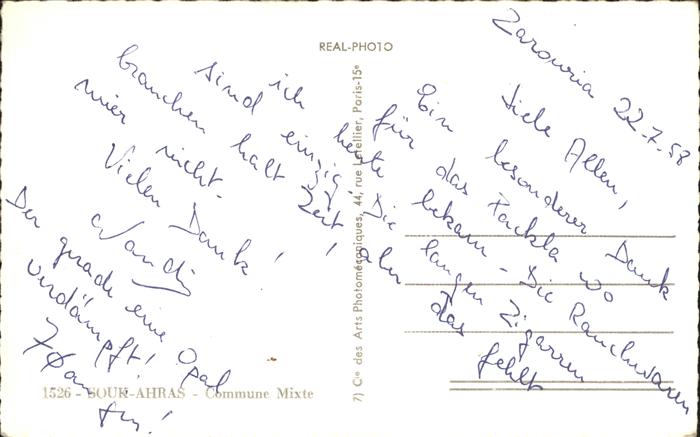 REAL-PHOTO
Zarouria 22-7.58
Liebe Allen,
Ein besonderer Dank
für das Packla wo
ich heute bekam - Die Rauchwaren
sind einzig. Die langen Zigarren
brauchen halt Zeit, aber das fehlt
mier nicht.
Vielen Dank!
Der grade eine Opal
verdämpft!
7) Cie des Arts Photomécaniques, 44, rue Letellier, Paris-15e
1526 - SOUK-AHRAS - Commune Mixte